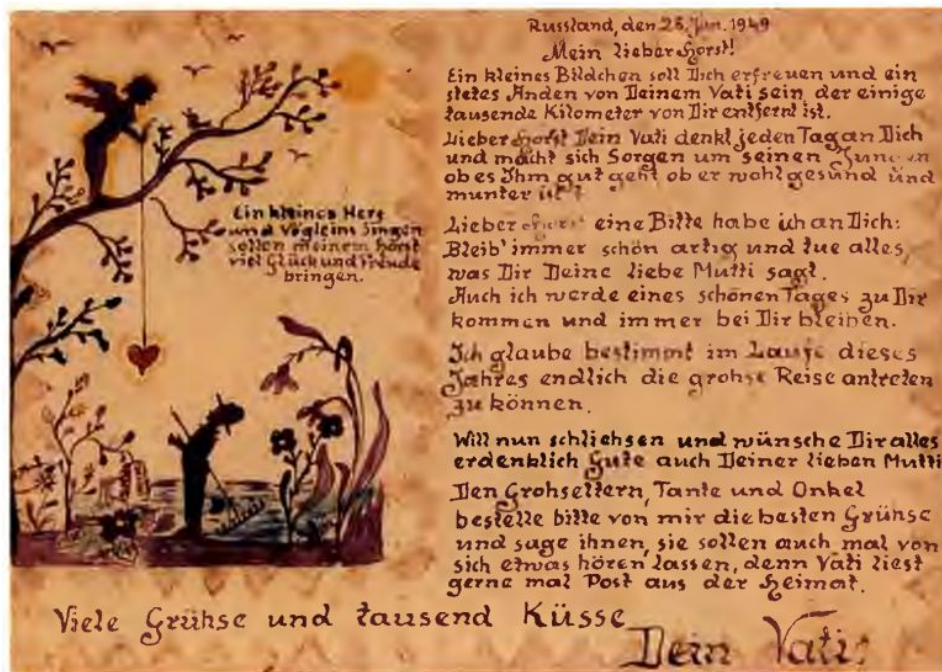 Russland, den 26. Jan. 1949
Mein lieber Horst!
Ein kleines Bildchen soll Dich erfreuen und ein
stetes Anden von Deinem Vati sein, der einige
tausende Kilometer von Dir entfernt ist.
Lieber Horst Dein Vati denkt jeden Tag an Dich
und macht sich Sorgen um seinen Jungen
ob es Ihm gut geht ob er wohl gesund und
munter ist?
Lieber Horst eine Bitte habe ich an Dich:
Bleib' immer schön artig und tue alles,
was Dir Deine liebe Mutti sagt.
Auch ich werde eines schönen Tages zu Dir
kommen und immer bei Dir bleiben.
Ich glaube bestimmt im Laufe dieses
Jahres endlich die grohse Reise antreten
zu können.
Will nun schliehsen und wünsche Dir alles
erdenklich Gute auch Deiner lieben Mutti
Den Grohseltern, Tante und Onkel
bestelle bitte von mir die besten Grühse
und sage ihnen, sie sollen auch mal von
sich etwas hören lassen, denn Vati liest
gerne mal Post aus der Heimat.
Ein kleines Herz
und Vögleins Singen
sollen meinem Horst
viel Glück und Freude
bringen.
Viele Grühse und tausend Küsse
Dein Vati